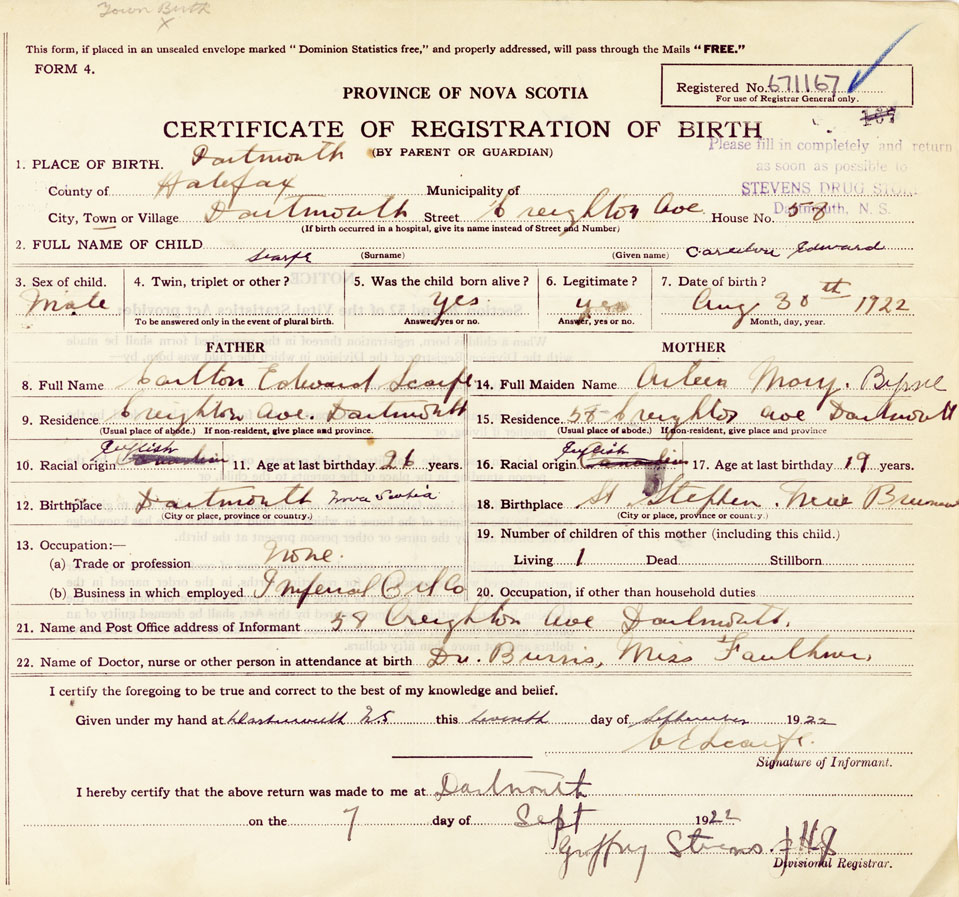 Town Birth
X
This form, if placed in an unsealed envelope marked "Dominion Statistics free," and properly addressed, will pass through the Mails "FREE."
FORM 4.
Registered No. 671167
For use of Registrar General only.
PROVINCE OF NOVA SCOTIA
167
CERTIFICATE OF REGISTRATION OF BIRTH
(BY PARENT OR GUARDIAN)
Please fill in completely and return
as soon as possible to
STEVENS DRUG STORE
Dartmouth, N. S.
1. PLACE OF BIRTH. Dartmouth
County of Halefax Municipality of
City, Town or Village Dartmouth Street Creighton Ave. House No. 58
(If birth occurred in a hospital, give its name instead of Street and Number)
2. FULL NAME OF CHILD Scarfe Edward
(Surname) (Given name)
3. Sex of child. 4. Twin, triplet or other? 5. Was the child born alive? 6. Legitimate? 7. Date of birth?
Male yes. yes Aug 30th 1922
To be answered only in the event of plural birth. Answer, yes or no. Answer, yes or no. Month, day, year.
FATHER MOTHER
8. Full Name Carlton Edward Scarfe 14. Full Maiden Name Mary.
9. Residence Creighton Ave. Dartmouth 15. Residence. 58 Creighton Ave Dartmouth
(Usual place of abode.) If non-resident, give place and province. (Usual place of abode.) If non-resident, give place and province
English English
10. Racial origin Canadian 11. Age at last birthday. 26 years. 16. Racial origin Canadian 17. Age at last birthday. 19 years.
12. Birthplace Dartmouth Nova Scotia 18. Birthplace St Stephen. New
(City or place, province or country.) (City or place, province or country.)
13. Occupation:— 19. Number of children of this mother (including this child.)
(a) Trade or profession None. Living 1 Dead Stillborn
(b) Business in which employed Imperial Oil Co 20. Occupation, if other than household duties
21. Name and Post Office address of Informant 58 Creighton Ave Dartmouth.
22. Name of Doctor, nurse or other person in attendance at birth Dr. Burris, Miss Faulkner,
I certify the foregoing to be true and correct to the best of my knowledge and belief.
Given under my hand at Dartmouth N.S this seventh day of September 1922
C E Scarfe.
Signature of Informant.
I hereby certify that the above return was made to me at Dartmouth
on the 7 day of Sept 1922
Stevens
Divisional Registrar.